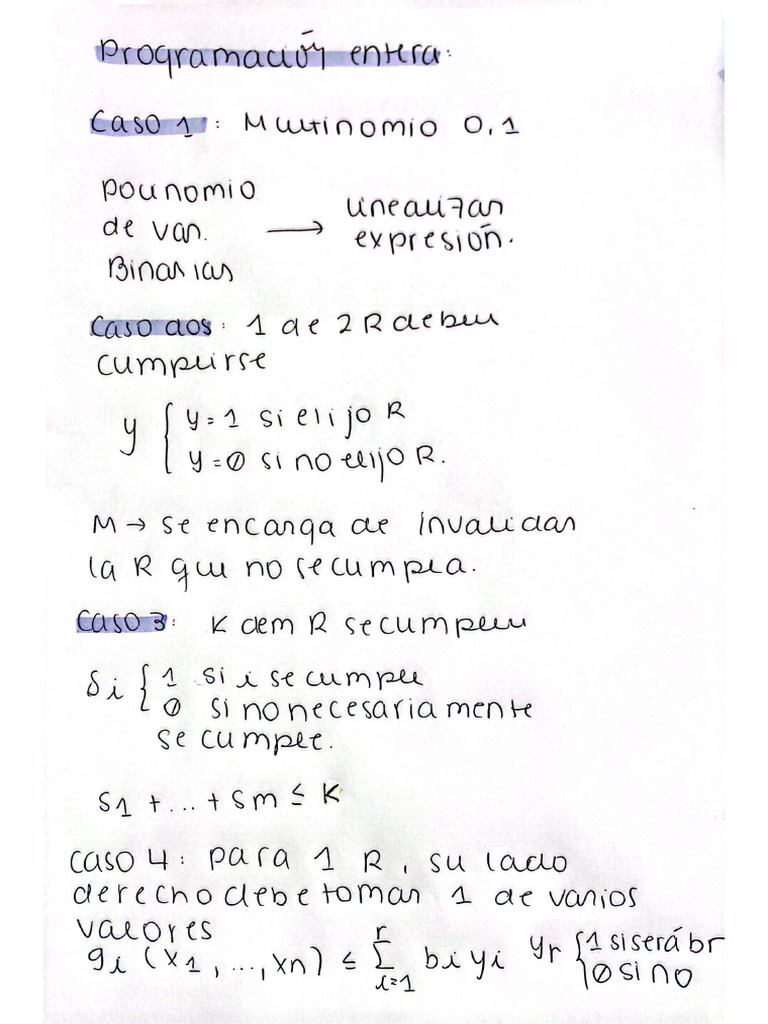 Programación entera:
Caso 1: Multinomio 0,1
Polinomio
de var.
Binarias
→ linealizar
expresión.
Caso dos: 1 de 2 R deben
cumplirse
y { y=1 si elijo R
y=0 si no elijo R.
M → se encarga de invalidar
la R que no se cumpla.
Caso 3: K de m R se cumplen
δi { 1 si i se cumple
0 si no necesariamente
se cumple.
δ1 + ... + δm ≤ K
Caso 4: para 1 R, su lado
derecho debe tomar 1 de varios
valores
gi (x1, ..., xn) ≤ Σ_{i=1}^{r} bi yi yr { 1 si será br
0 si no